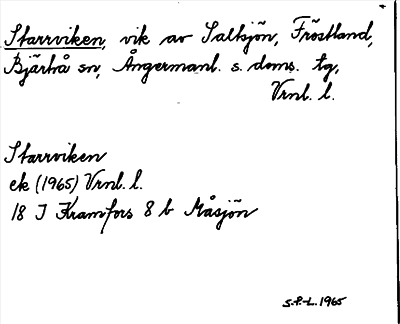 Starrviken, vik av Saltsjön, Fröstland,
Bjärtrå sn, Ångermanl. s. doms. tg,
Vrnl. l.
Starrviken
ek (1965) Vrnl. l.
18 I Kramfors 8 b Måsjön
S.P-L. 1965